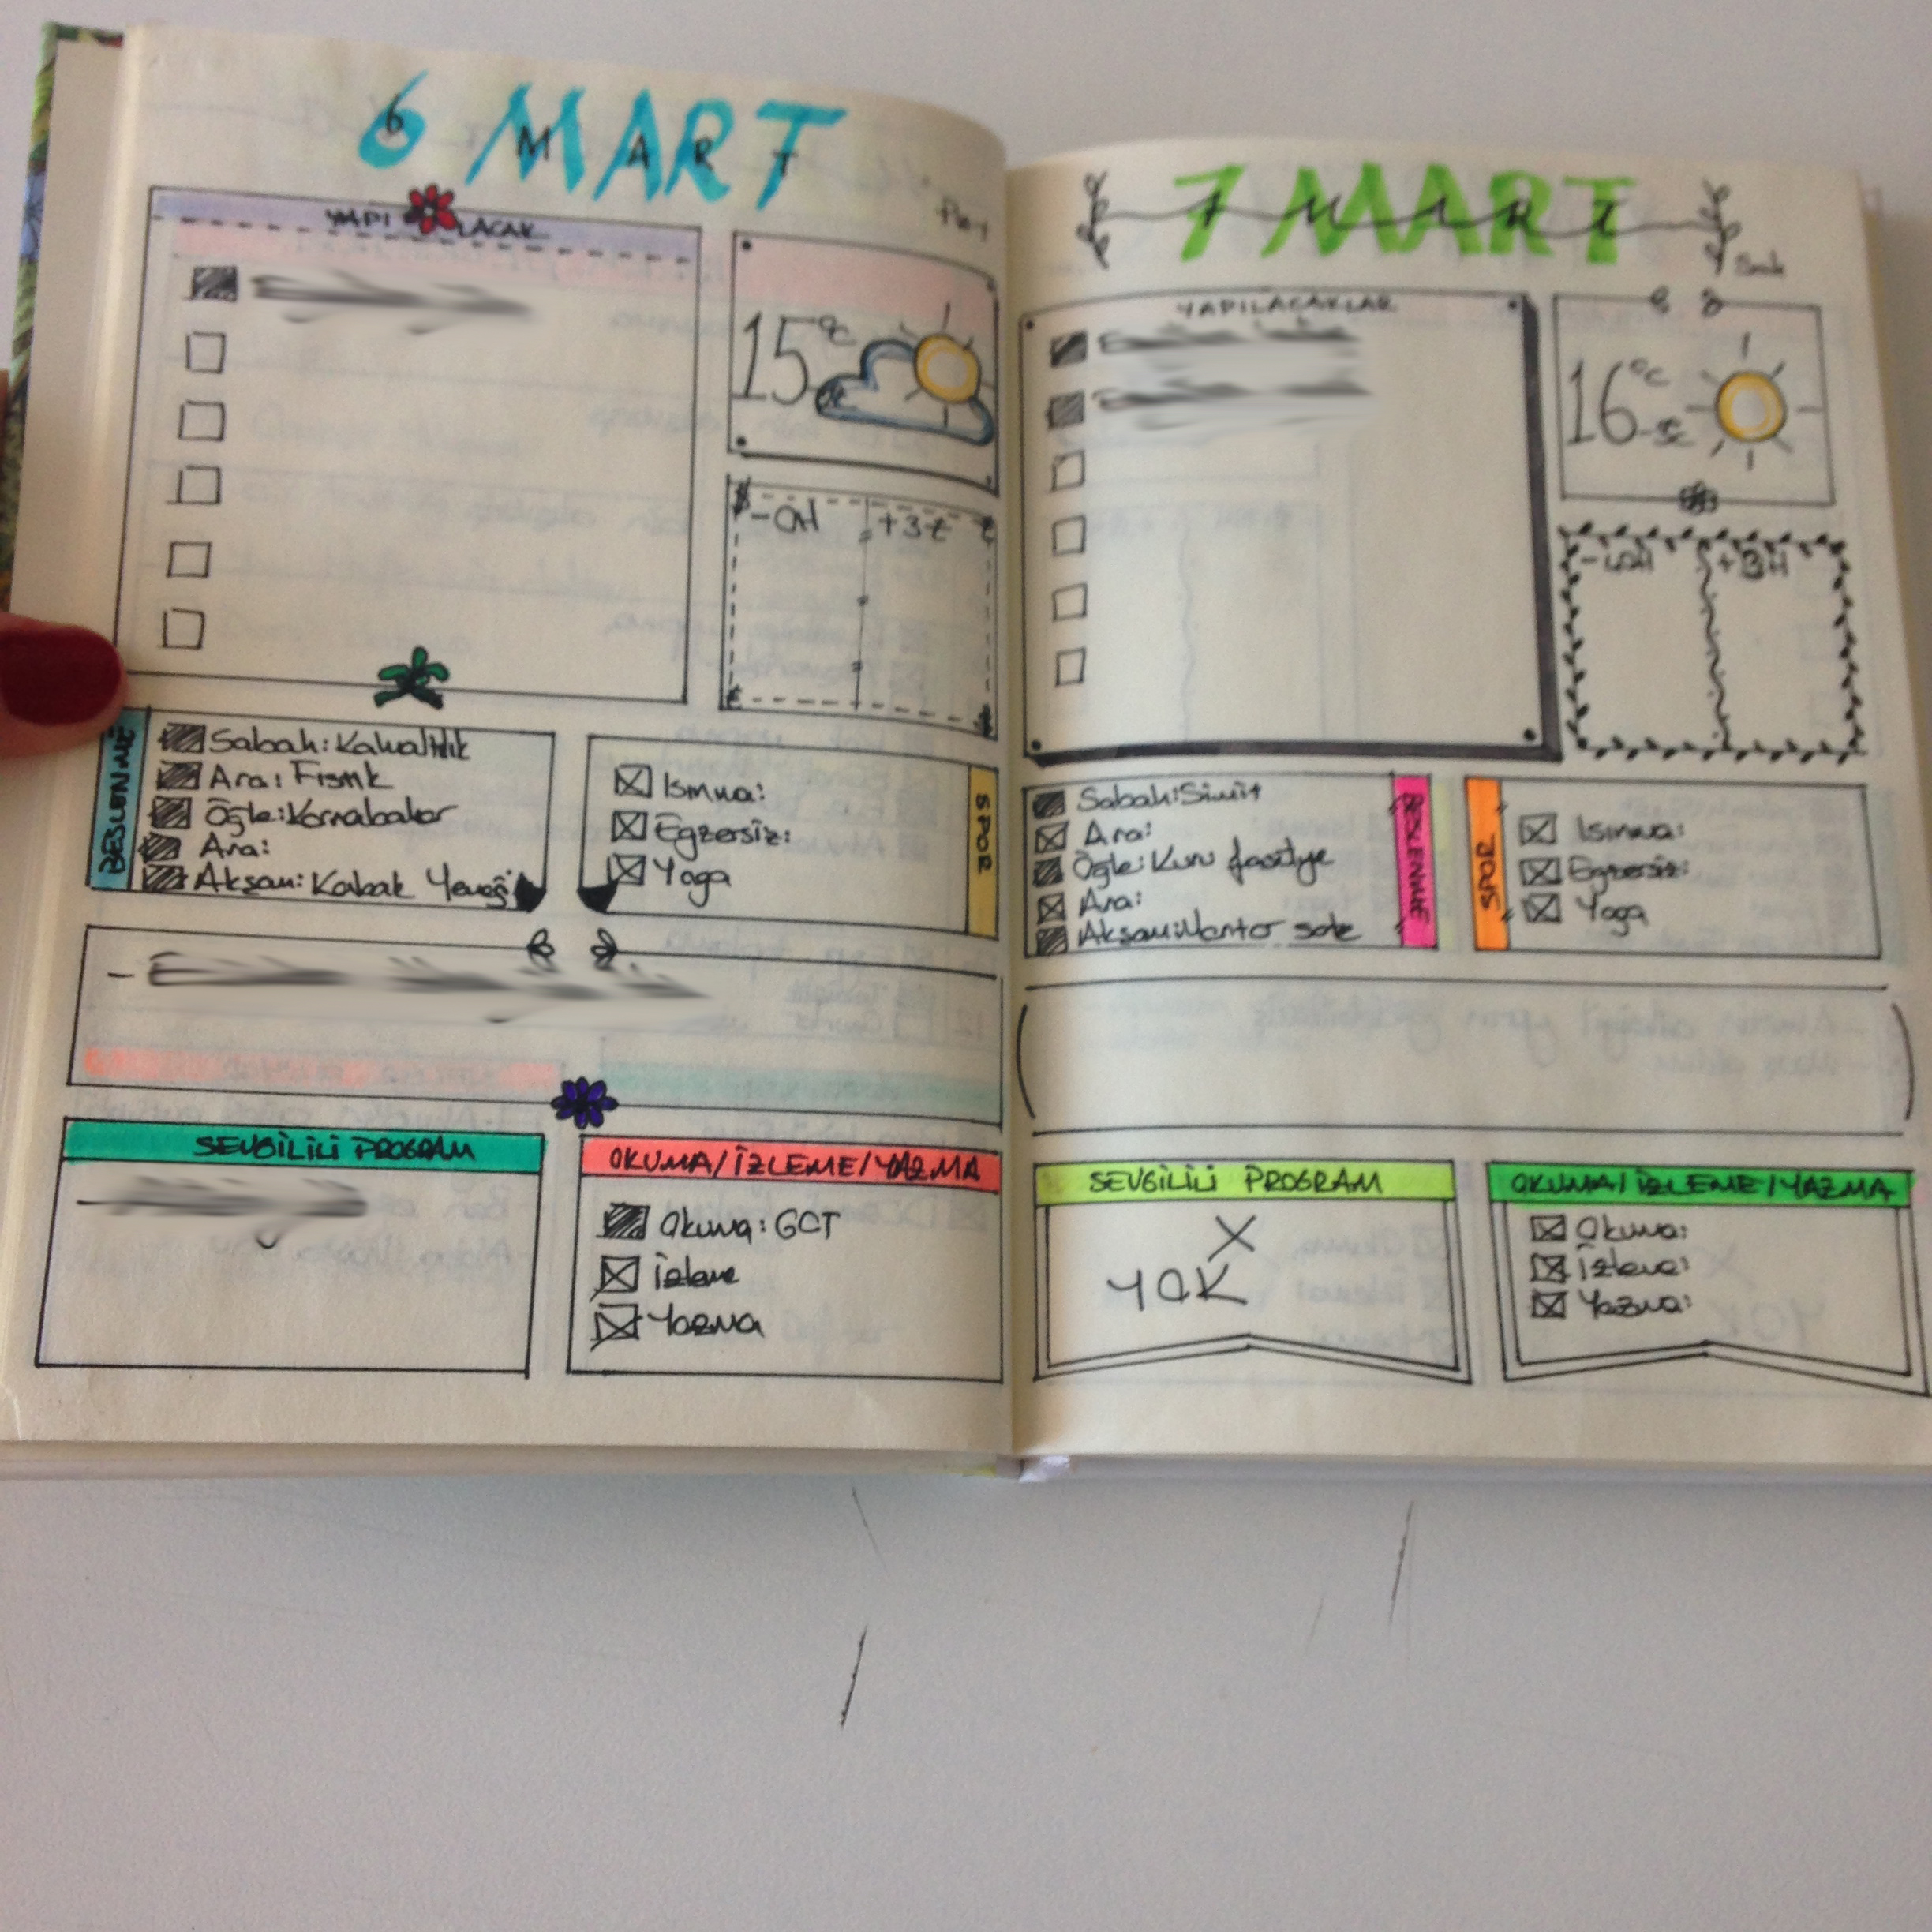 6 MART
6 MART
YAPI LACAK
15°C
+3t
BESLENME
Sabah: Kahvaltılık
Ara: Fıstık
Öğle: Karnabahar
Ara:
Akşam: Kabak Yemeği
Isınma:
Egzersiz:
Yoga
SPOR
SEVGİLİLİ PROGRAM
OKUMA/İZLEME/YAZMA
Okuma: GOT
İzleme
Yazma
7 MART
7 MART
Salı
YAPILACAKLAR
16°C
Sabah: Simit
Ara:
Öğle: Kuru fasülye
Ara:
Akşam: Mantar sote
BESLENME
SPOR
Isınma:
Egzersiz:
Yoga
SEVGİLİLİ PROGRAM
X
YOK
OKUMA/İZLEME/YAZMA
Okuma:
İzleme:
Yazma: